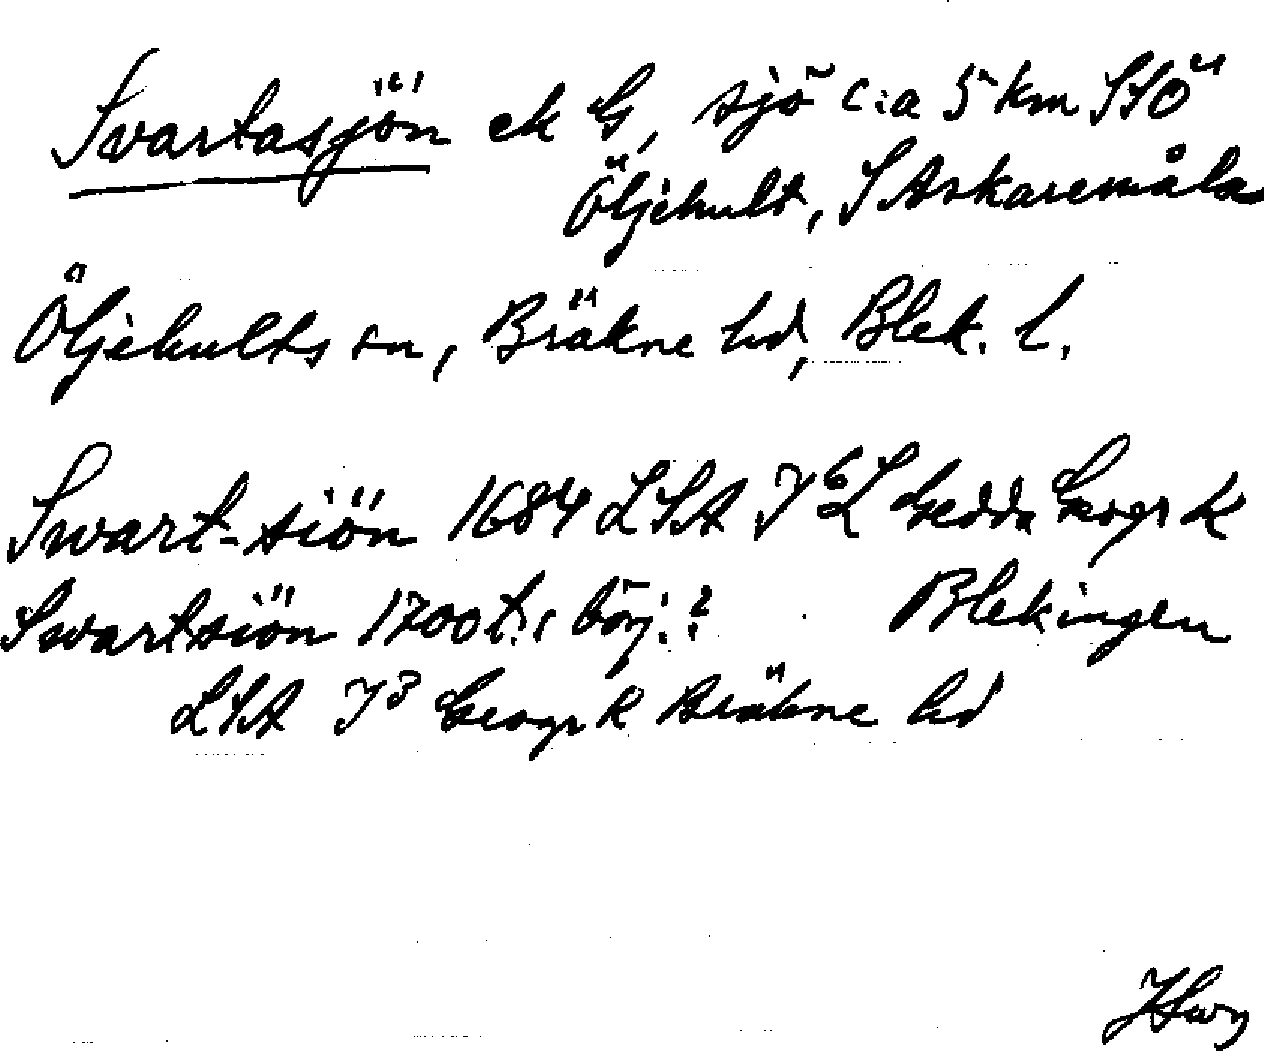 Svartasjön ek G, sjö c:a 5 km SSÖ
Öljehult, S Askaremåla
Öljehults sn, Bräkne hd, Blek. l.
Swart-siön 1684 LSA J⁶L Gedda Geogr K
Swartsiön 1700t:s börj.? Blekingen
LSA J³ Geogr K Bräkne hd